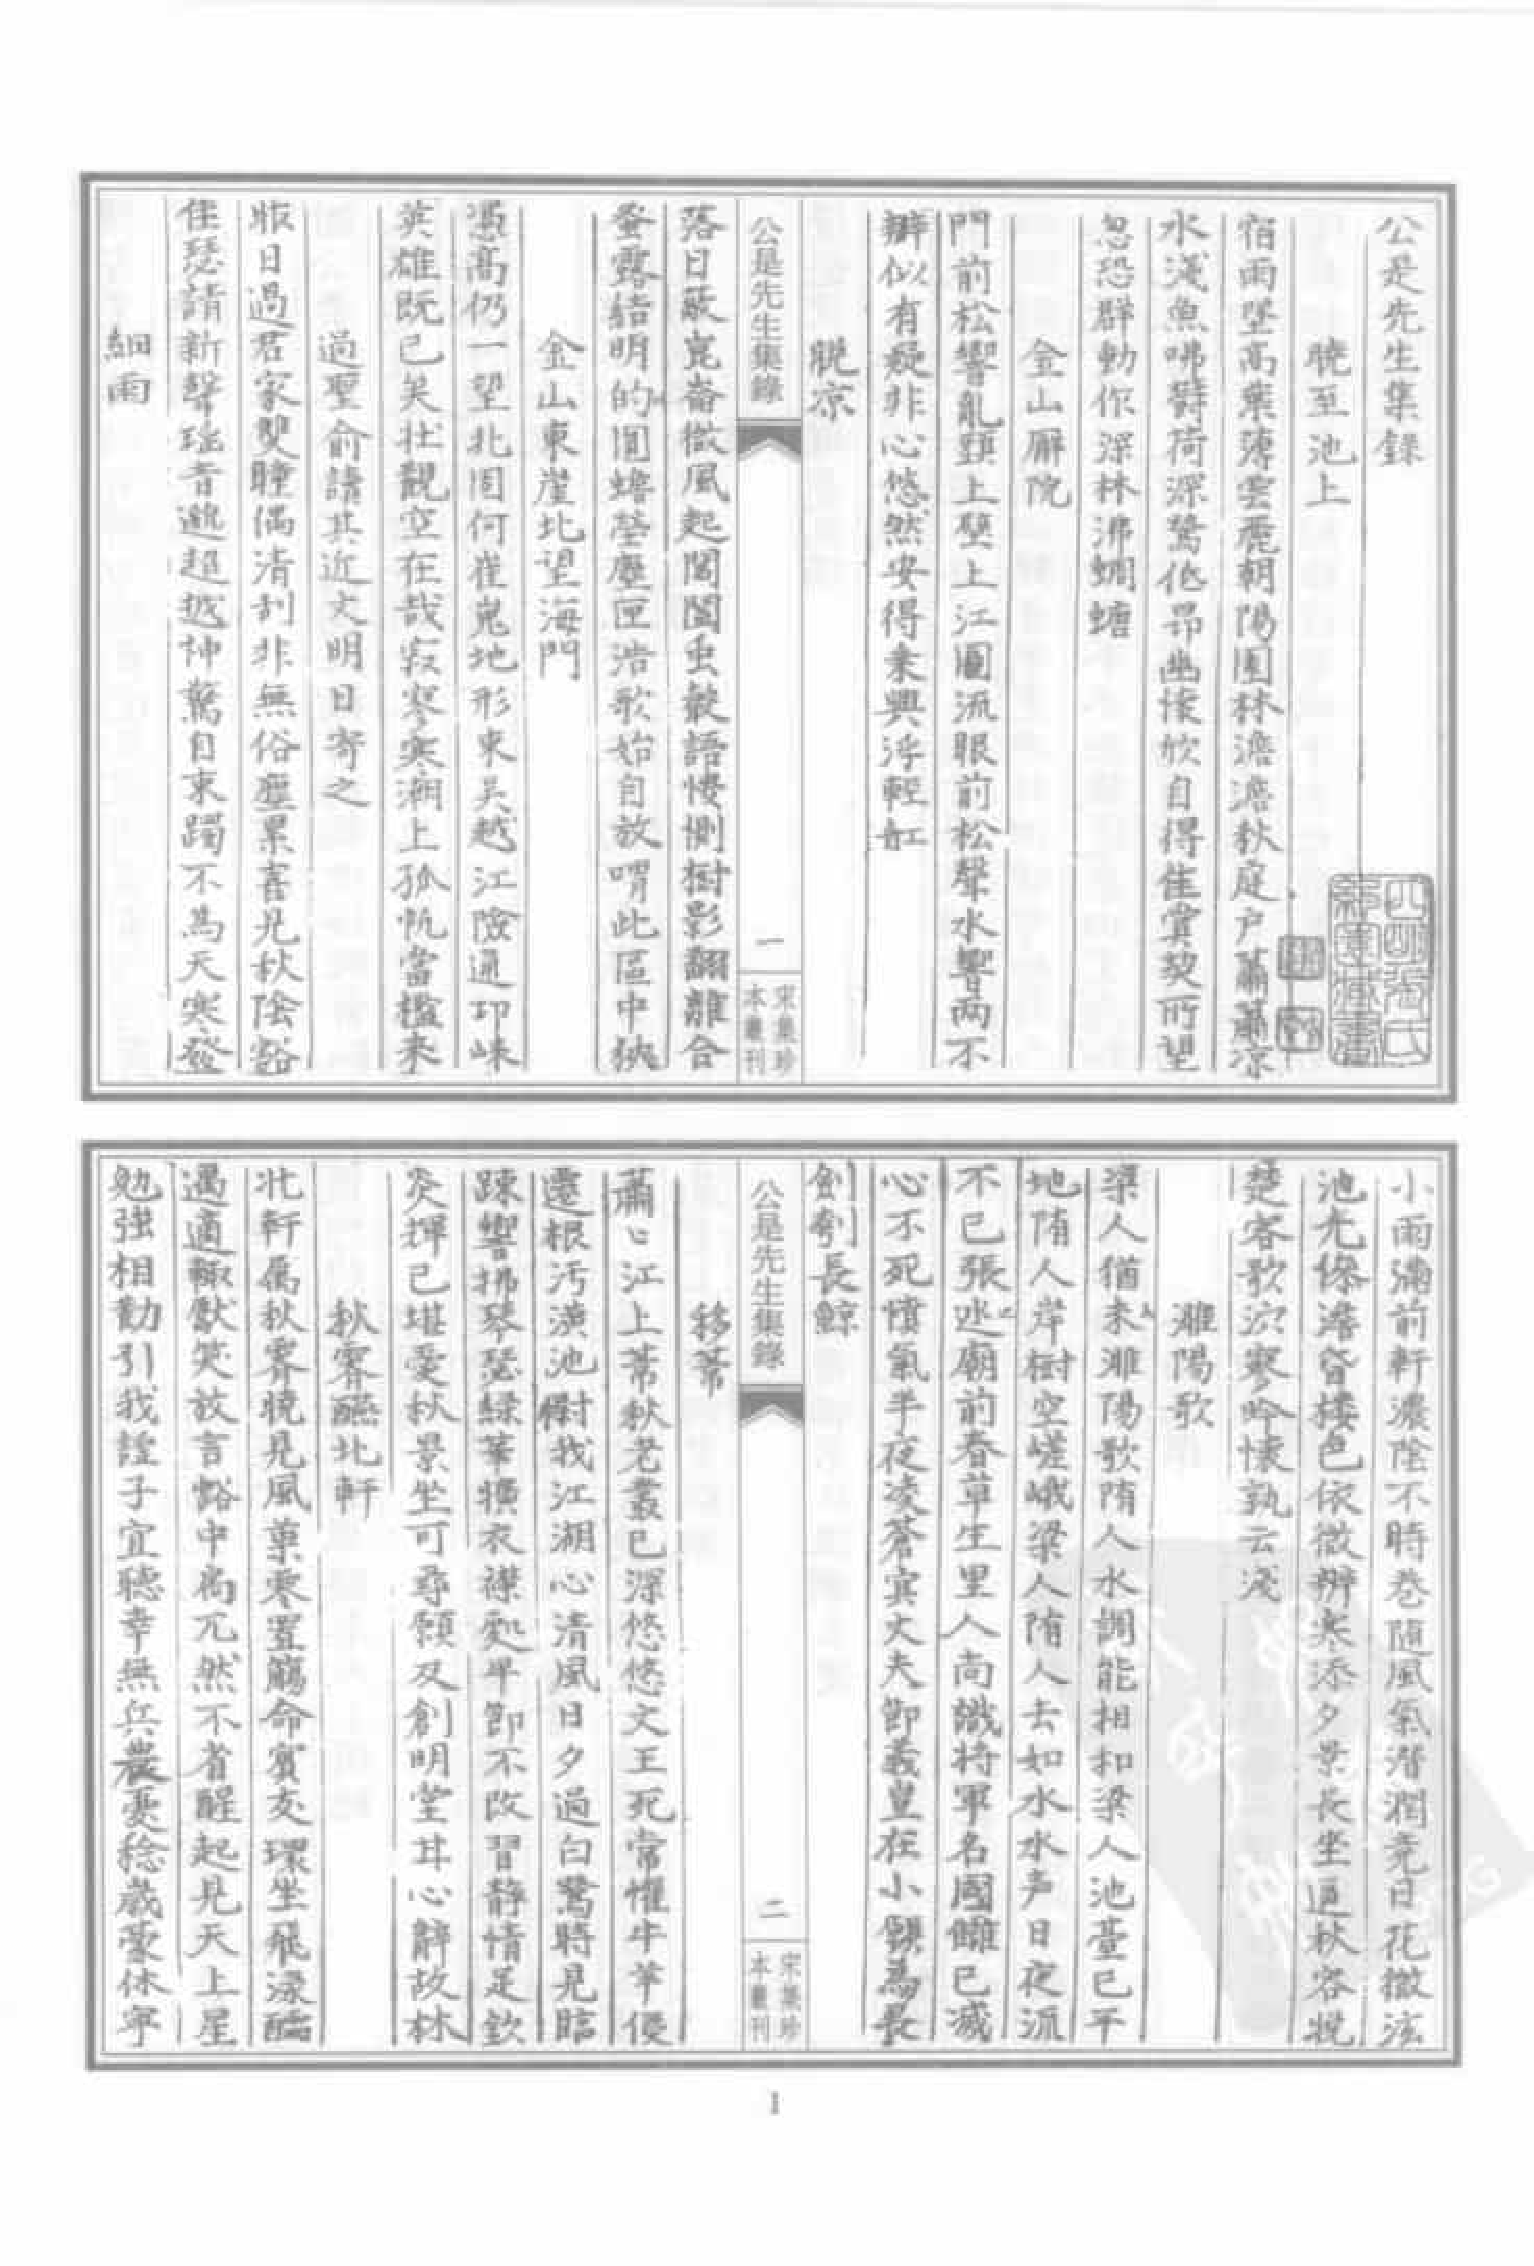 公是先生集錄
曉至池上
宿雨墜高葉薄雲麗朝陽園林澹澹秋庭户蕭蕭凉
水淺魚咈欝荷深鷺低昂幽懷欣自得佳賞契所望
忽恐群動作深林沸蜩螗
金山廨院
門前松響亂頭上壁上江圖流眼前松聲水響两不
辨似有疑非心悠然安得乗興浮輕舡
晚凉
落日蔽崑崙微風起閶闔虫鼓語悽惻樹影翻離合
蛬露結明的圓蟾瑩塵匣浩歌始自放喟此區中狹
金山東崖北望海門
憑高仍一望北固何崔嵬地形東吳越江險通邛崍
英雄既已矣壯觀空在哉寂寥寒潮上孤帆當檻来
過聖俞請其近文明日寄之
昨日過君家雙瞳偶清刮非無俗塵累喜見秋陰豁
佳瑟請新聲瑶音邈超越神驚自束躅不為天寒發
細雨
公是先生集錄
一
宋集珍
本叢刊
小雨滿前軒濃陰不時卷随風氣潜潤竟日花微泫
池光滲澹昏楼色依微辨寒添夕景長坐逼秋容挽
楚客歌泬寥吟懷孰云淺
濉陽歌
梁人猶未濉陽歌隋人水調能相和梁人池臺已平
地隋人岸樹空嵯峨梁人隋人去如水水声日夜流
不已張巡廟前春草生里人尚識将軍名國讎已滅
心不死憤氣半夜凌蒼宾丈夫節義皇在小願為長
劍刳長鯨
移葦
蕭〻江上葦秋老叢已深悠悠文王死常惟牛羊侵
遷根汚潢池慰我江湖心清風日夕過白鷺時見臨
踈響拂琴瑟緑華横衣襟處平節不改習静情足欽
炎揮已堪愛秋景坐可尋願及創明堂甘心辭故林
秋霽醼北軒
北軒属秋霽曉見風菓零置觴命賓友環坐飛渌醽
遇適輒獻笑放言豁中扃兀然不省醒起見天上星
勉強相勸引我謹子宜聴幸無兵農憂稔歲蒙休寧
公是先生集錄
二
宋集珍
本叢刊
1